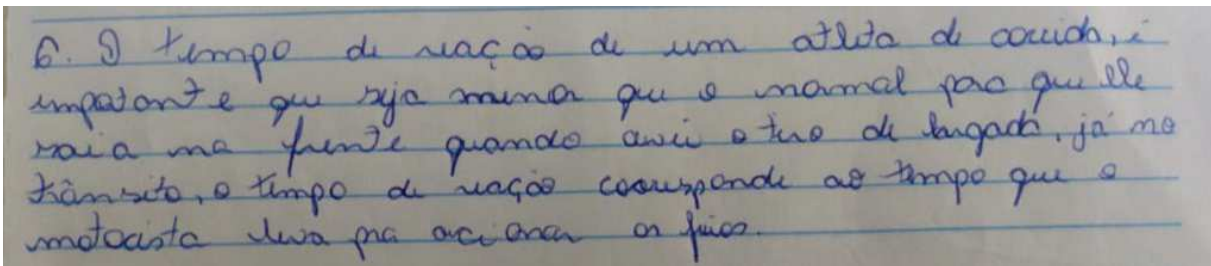 6. O tempo de reação de um atleta de corrida, é
importante que seja menor que o normal para que ele
saia na frente quando ouvir o tiro de largada, já no
trânsito, o tempo de reação corresponde ao tempo que o
motorista leva pra acionar os freios.